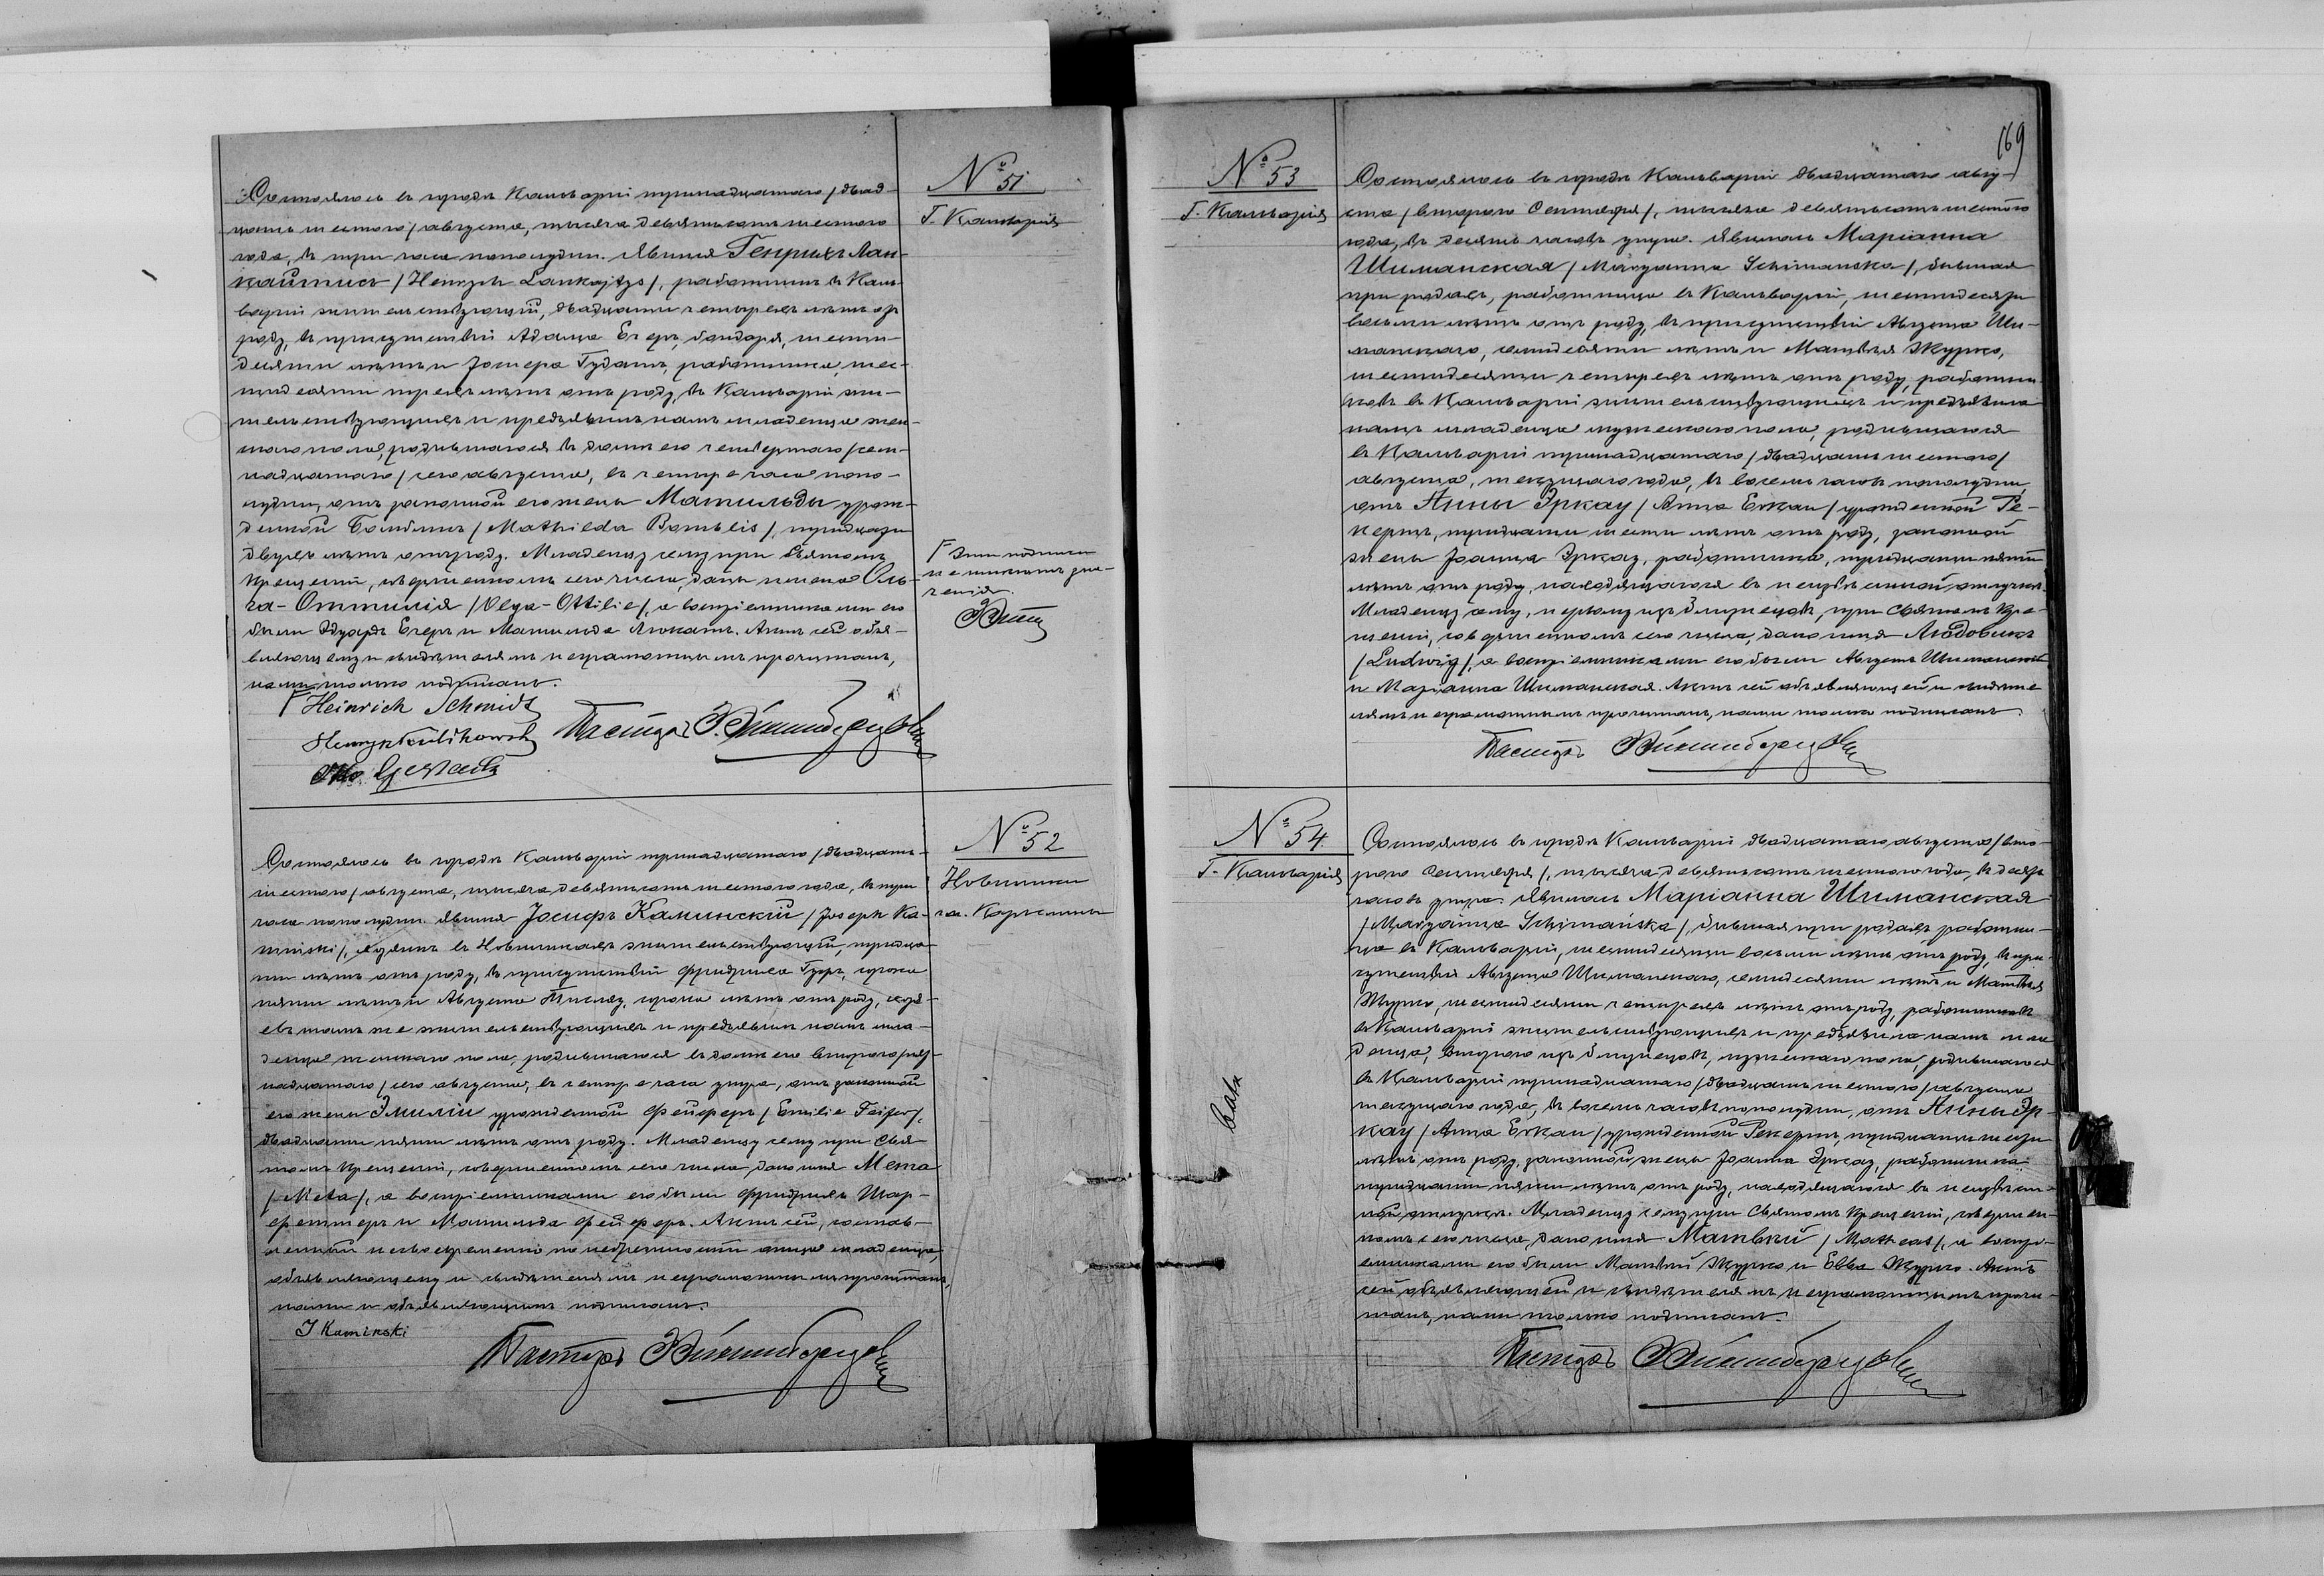 № 51
Г. Кальварія
Состоялось въ городѣ Кальваріи тринадцатаго /двад-
цать шестого/ августа, тысяча девятьсотъ шестого
года, въ три часа пополудни. Явился Генрихъ Лан-
кайтисъ /Henryk Lankajtys/, работникъ въ Каль-
варіи жительствующій, двадцати четырехъ лѣтъ отъ
роду, въ присутствіи Адама Егеръ, бондаря, шести-
десяти лѣтъ и Гудатъ, работника, шес-
тидесяти трехъ лѣтъ отъ роду, въ Кальваріи жи-
тельствующихъ и предъявилъ намъ младенца жен-
скаго пола, родившагося въ домѣ его четвертаго /сем-
надцатаго/ сего августа, въ четыре часа попо-
лудни, отъ законной его жены Матильды урож-
денной Бомблисъ /Mathilda Bomblis/, тридцати
двухъ лѣтъ отъ роду. Младенцу сему при Святомъ
Крещеніи, совершенномъ сего числа, даны имена Оль-
га-Оттилія /Olga-Ottilie/, а воспріемниками его
были Эдуардъ Егеръ и Матильда Люкатъ. Актъ сей объя-
вляющему и свидѣтелямъ неграмотнымъ прочитанъ,
нами только подписанъ.
Heinrich Schmidt
Пасторъ
Эти подписи
не имѣютъ зна-
ченія.
№ 52
Новинки
гм. Кирсны
Состоялось въ городѣ Кальваріи тринадцатаго /двадцать
шестого/ августа, тысяча девятьсотъ шестого года, въ три
часа пополудни. Явился Іосифъ Каминскій /Joseph Ka-
minski/, хозяинъ въ Новинкахъ жительствующій, тридца-
ти лѣтъ отъ роду, въ присутствіи Фридриха Гурх, сорока
пяти лѣтъ и Августа сорока лѣтъ отъ роду, хозя-
евъ тамъ же жительствующихъ и предъявилъ намъ мла-
денца женскаго пола, родившагося въ домѣ его второго /пят-
надцатаго/ сего августа, въ четыре часа утра, отъ законной
его жены Эмиліи урожденной Фейферъ /Emilie Feifer/,
двадцати пяти лѣтъ отъ роду. Младенцу сему при Свя-
томъ Крещеніи, совершенномъ сего числа дано имя Мета
/Meta/, а воспріемниками его были Фридрихъ Шар-
феттеръ и Матильда Фейферъ. Актъ сей, состав-
ленный несвоевременно по небрежности отца младенца,
объявляющему и свидѣтелямъ неграмотнымъ прочитанъ,
нами и объявляющимъ подписанъ.
J Kaminski
Пасторъ
169
№ 53
Г. Кальварія
Состоялось въ городѣ Кальваріи двадцатаго авгу-
ста /второго Сентября/, тысяча девятьсотъ шестого
года, въ десять часовъ утра. Явилась Маріанна
Шиманская /Maryanna Schimanska/, бывшая
при родахъ, работница въ Кальваріи, шестидесяти
восьми лѣтъ отъ роду, въ присутствіи Августа Ши-
манскаго, семидесяти лѣтъ и Матвѣя Журко,
шестидесяти четырехъ лѣтъ отъ роду, работни-
ковъ въ Кальваріи жительствующихъ и предъявила
намъ младенца мужескаго пола, родившагося
въ Кальваріи тринадцатаго /двадцать шестого/
августа, текущаго года, въ восемь часовъ пополудни,
отъ Анны Эркау /Anna Erkau/ урожденной Ре-
кертъ, тридцати шести лѣтъ отъ роду, законной
жены Іоанна Эркау, работника, тридцати пяти
лѣтъ отъ роду, находящагося въ неизвѣстной отлучкѣ.
Младенцу сему, первому изъ близнецовъ, при Святомъ Кре-
щеніи, совершенномъ сего числа, дано имя Людовикъ
/Ludwig/, а воспріемниками его были Августъ Шиманскій
и Маріанна Шиманская. Актъ сей объявляющей и свидѣте
лямъ неграмотнымъ прочитанъ, нами только подписанъ.
Пасторъ
№ 54
Г. Кальварія
Состоялось въ городѣ Кальваріи двадцатаго августа /вто-
рого Сентября/, тысяча девятьсотъ шестого года, въ десять
часовъ утра. Явилась Маріанна Шиманская
/Maryanna Schimańska/, бывшая при родахъ работни-
ца въ Кальваріи, шестидесяти восьми лѣтъ отъ роду, въ при-
сутствіи Августа Шиманскаго, семидесяти лѣтъ и Матвѣя
Журко, шестидесяти четырехъ лѣтъ отъ роду, работниковъ
въ Кальваріи жительствующихъ и предъявила намъ мла
денца, второго изъ близнецовъ, мужескаго пола, родившагося
въ Кальваріи тринадцатаго /двадцать шестого/ августа
текущаго года, въ восемь часовъ пополудни, отъ Анны Эр-
кау /Anna Erkau/ урожденной Рекертъ, тридцати шести
лѣтъ отъ роду, законной жены Іоанна Эркау, работника
тридцати пяти лѣтъ отъ роду, находящагося въ неизвѣст-
ной отлучкѣ. Младенцу сему при Святомъ Крещеніи, совершен-
номъ сего числа, дано имя Матвѣй /Matheas/, а воспрі-
емниками его были Матвѣй Журко и Евва Журко. Актъ
сей объявляющей и свидѣтелямъ неграмотнымъ прочи-
танъ, нами только подписанъ.
Пасторъ